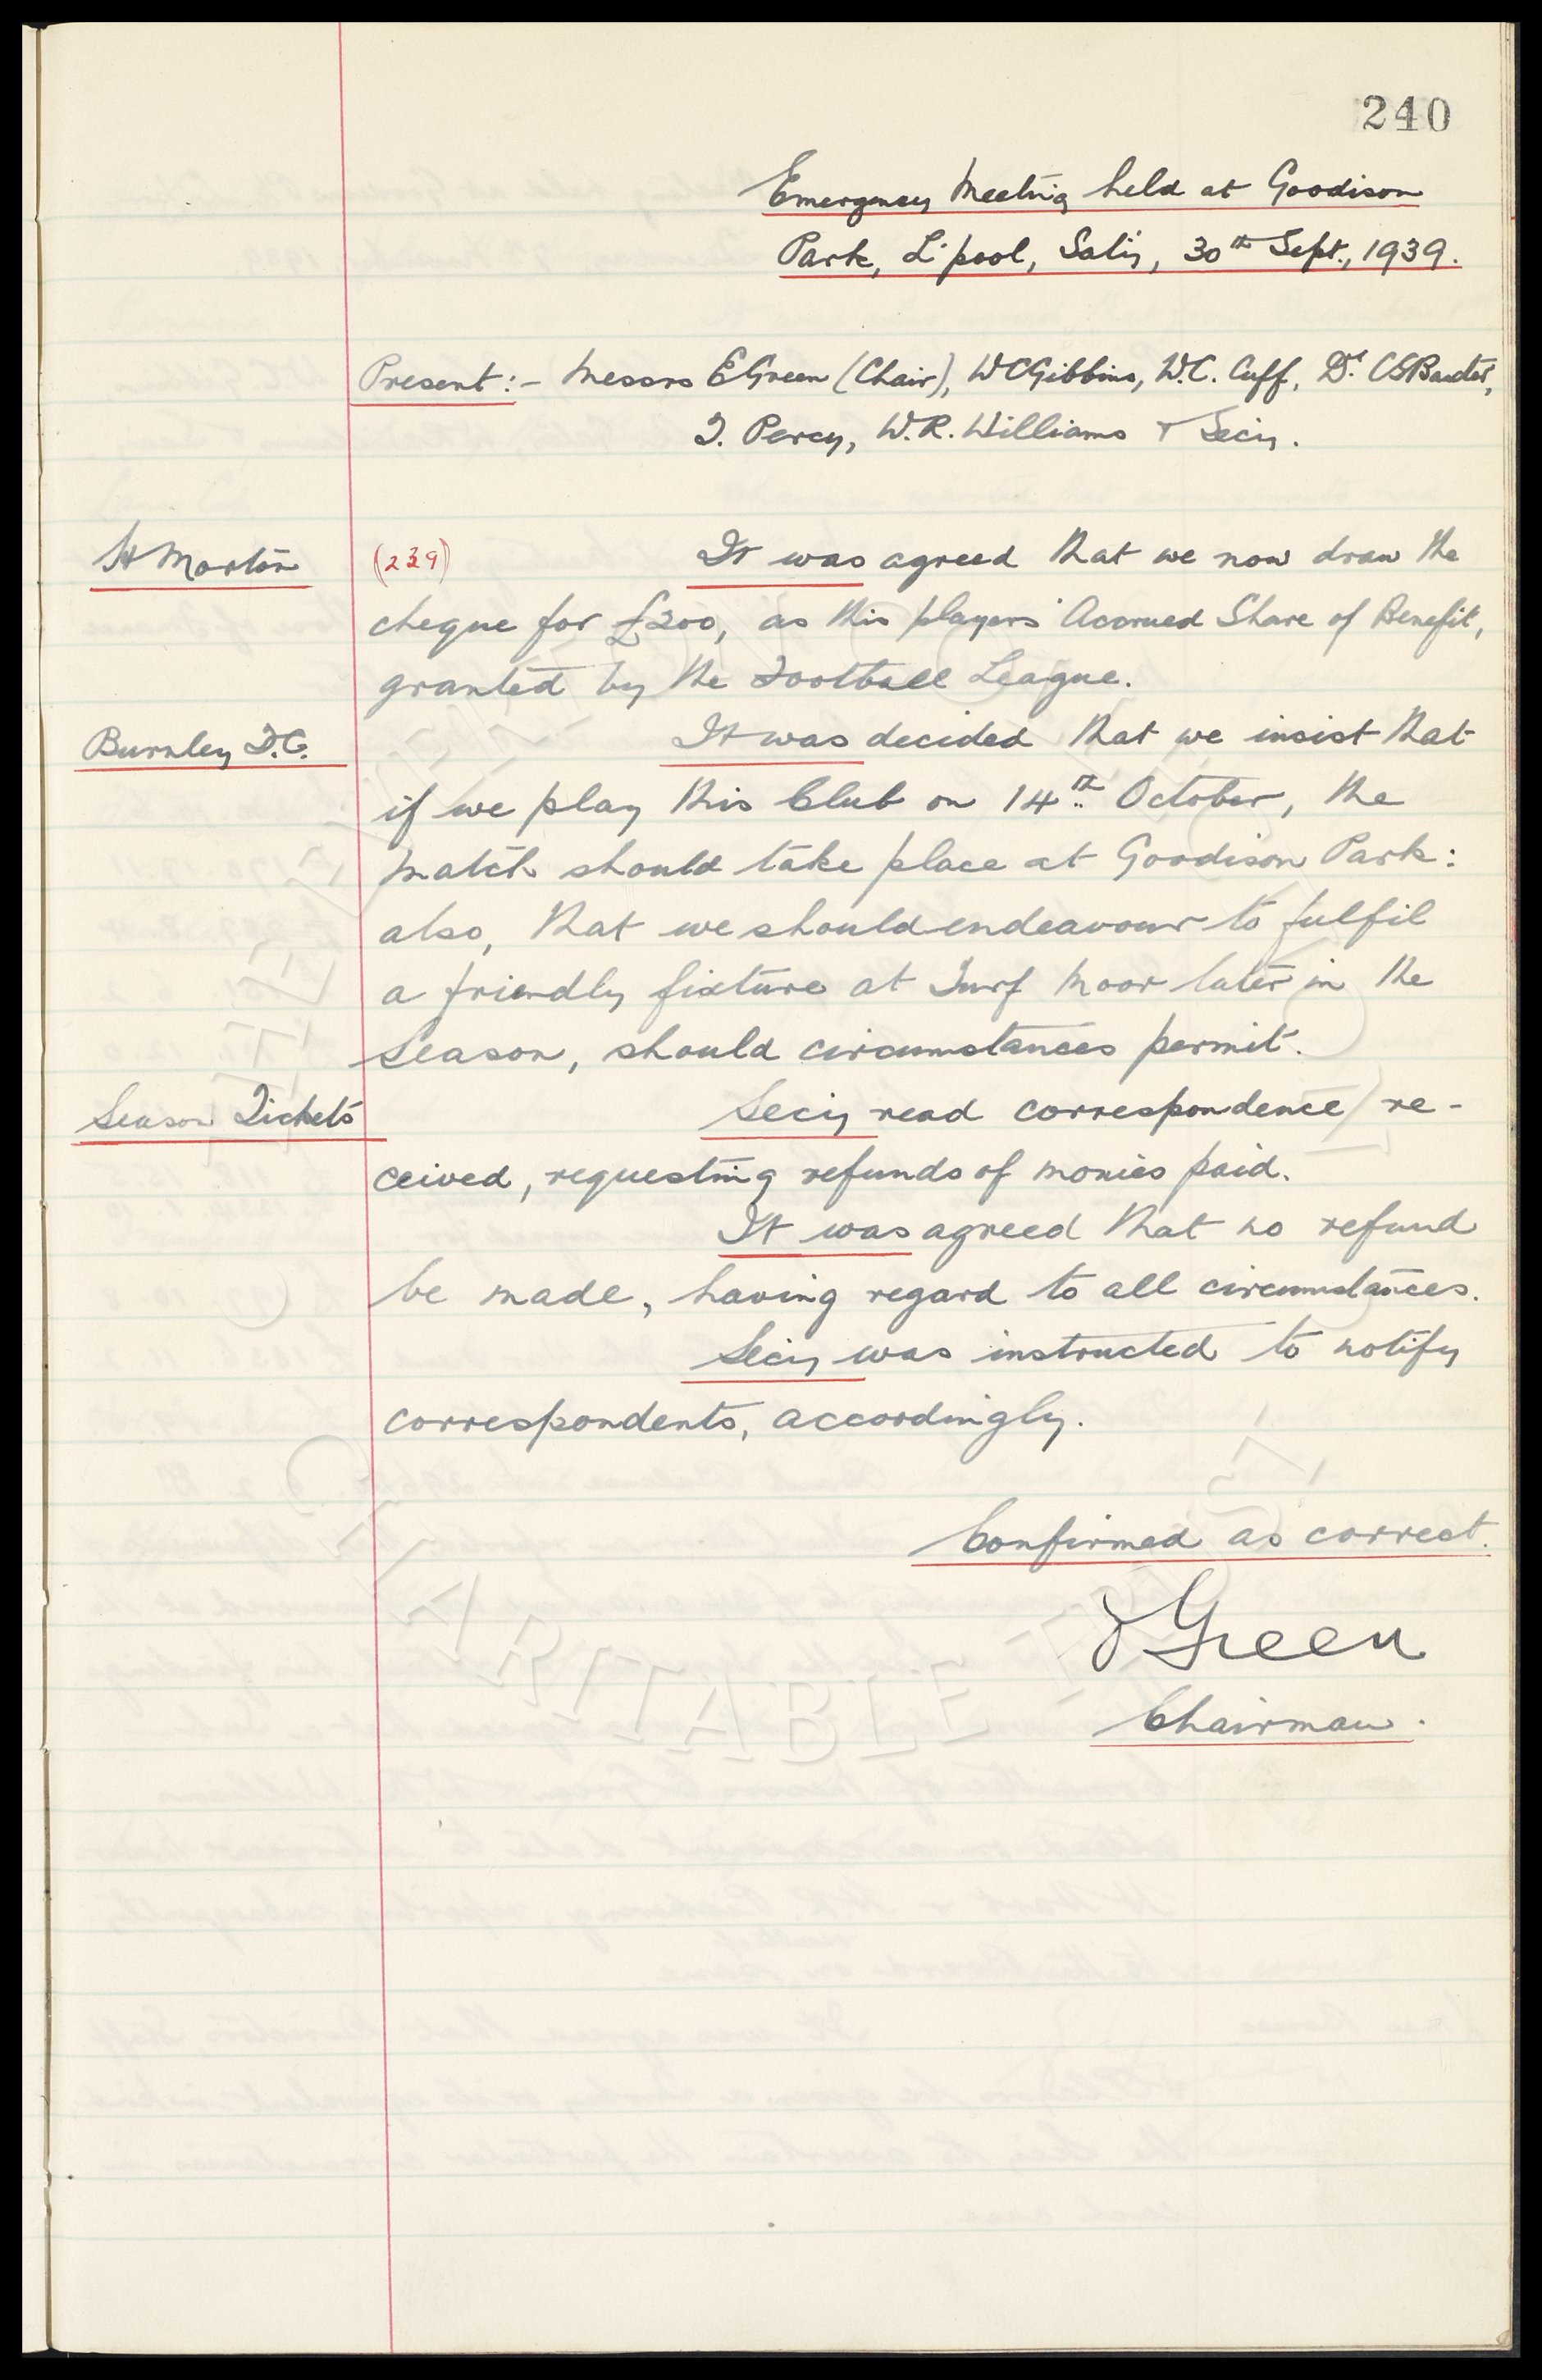 240
Emergency Meeting held at Goodison
Park, L'pool, Sat'y, 30th Sept., 1939.
Present:- Messrs E Green (Chair), W C Gibbins, W.C. Cuff, Dr. C S Baxter,
T. Percy, W.R. Williams & Sec'y.
H Morton (239) It was agreed that we now draw the
cheque for £200, as this players' Accrued Share of Benefit,
granted by the Football League.
Burnley F.C. It was decided that we insist that
if we play this Club on 14th October, the
match should take place at Goodison Park:
also, that we should endeavour to fulfil
a friendly fixture at Turf Moor later in the
Season, should circumstances permit.
Season Tickets Sec'y read correspondence re-
ceived, requesting refunds of monies paid.
It was agreed that no refund
be made, having regard to all circumstances.
Sec'y was instructed to notify
correspondents, accordingly.
Confirmed as correct.
E Green
Chairman.
CHARITABLE TRUST